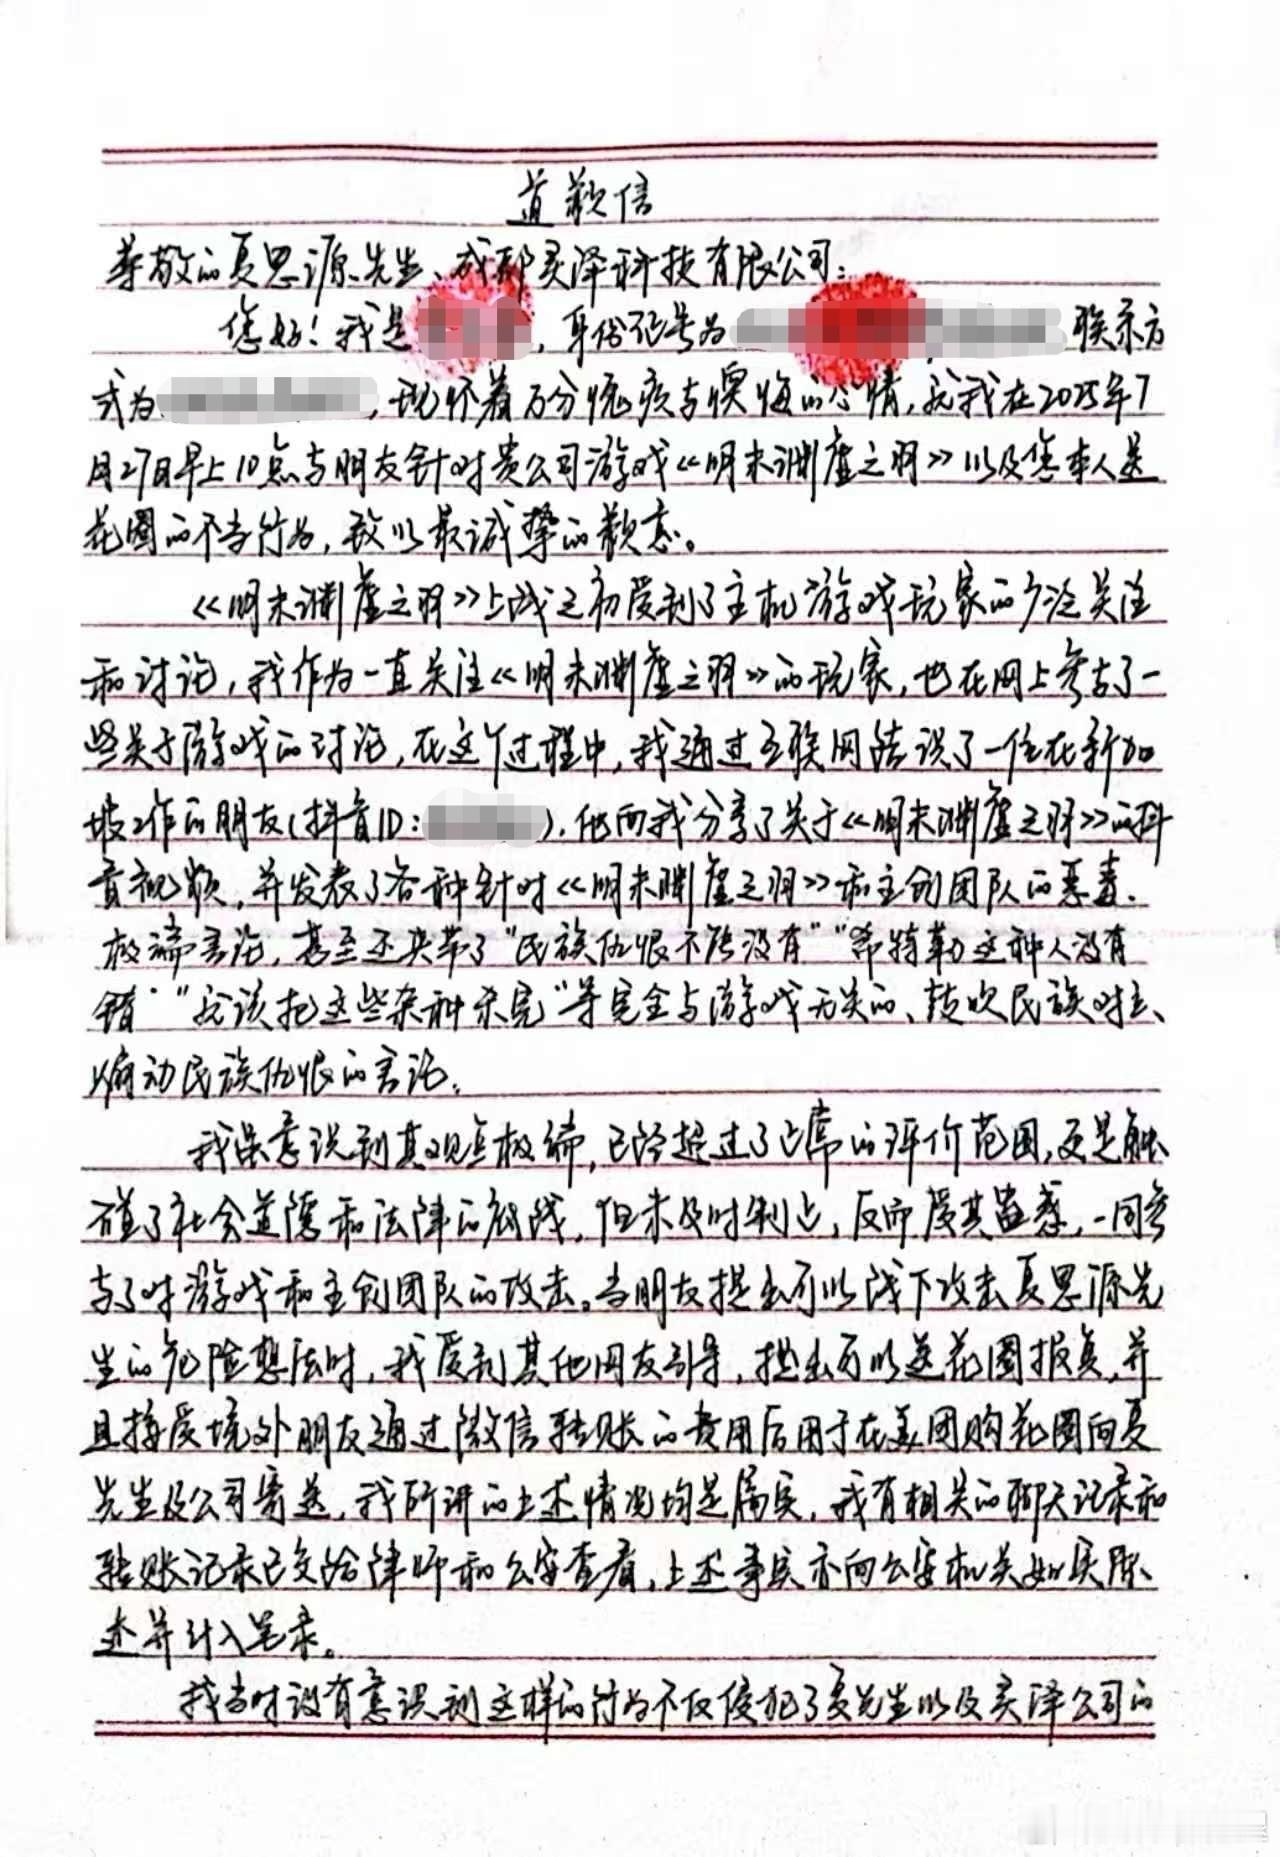 道歉信
尊敬的夏思源先生、成都灵泽科技有限公司：
您好！我是，身份证号为 联系方
式为，现怀着万分愧疚与懊悔的心情，就我在2025年7
月27日早上10点与朋友针对贵公司游戏《明末渊虚之羽》以及您本人送
花圈的不当行为，致以最诚挚的歉意。
《明末渊虚之羽》上线之初受到了主机游戏玩家的广泛关注
和讨论，我作为一直关注《明末渊虚之羽》的玩家，也在网上参与了一
些关于游戏的讨论，在这个过程中，我通过互联网结识了一位在新加
坡工作的朋友(抖音ID:)，他向我分享了关于《明末渊虚之羽》的抖
音视频，并发表了各种针对《明末渊虚之羽》和主创团队的恶毒、
极端言论，甚至还夹带了“民族仇恨不能没有”“希特勒这种人没有
错”“就该把这些杂种杀完”等完全与游戏无关的、鼓吹民族对立、
煽动民族仇恨的言论。
我虽意识到其观点极端，已经超过了正常的评价范围，更是触
碰了社会道德和法律的底线，但未及时制止，反而受其蛊惑，一同参
与了对游戏和主创团队的攻击。当朋友提出可以线下攻击夏思源先
生的危险想法时，我受到其他网友引导，提出可以送花圈报复，并
且接受境外朋友通过微信转账的费用后用于在美团购花圈向夏
先生及公司寄送，我所讲的上述情况均是属实，我有相关的聊天记录和
转账记录已交给律师和公安查看，上述事实亦向公安机关如实陈
述并计入笔录。
我当时没有意识到这样的行为不仅侵犯了夏先生以及灵泽公司的